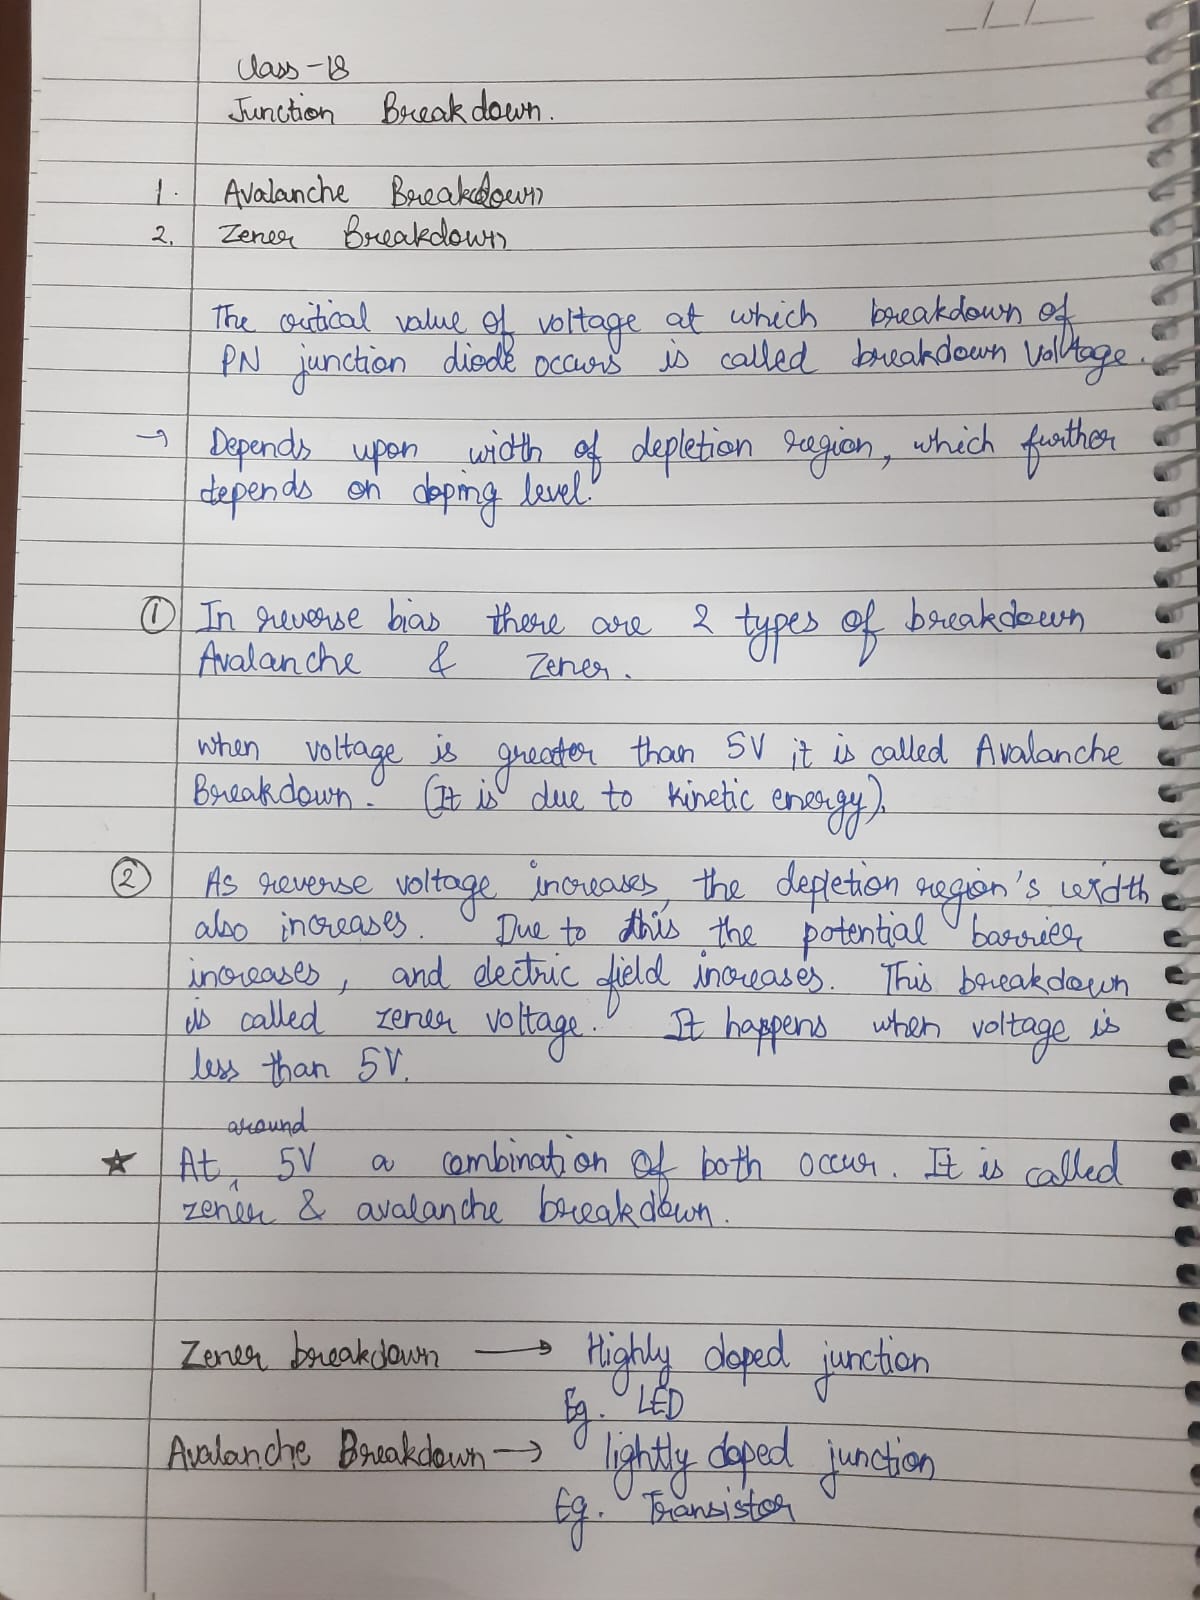 Class-18
Junction Breakdown.
1. Avalanche Breakdown
2. Zener Breakdown
The critical value of voltage at which breakdown of
PN junction diode occurs is called breakdown Voltage.
→ Depends upon width of depletion region, which further
depends on doping level.
① In reverse bias there are 2 types of breakdown
Avalanche & Zener.
when voltage is greater than 5V it is called Avalanche
Breakdown. (It is due to kinetic energy).
② As reverse voltage increases, the depletion region's width
also increases. Due to this the potential barrier
increases, and electric field increases. This breakdown
is called zener voltage. It happens when voltage is
less than 5V.
★ At around 5V a combination of both occur. It is called
zener & avalanche breakdown.
Zener breakdown → Highly doped junction
Eg. LED
Avalanche Breakdown → lightly doped junction
Eg. Transistor